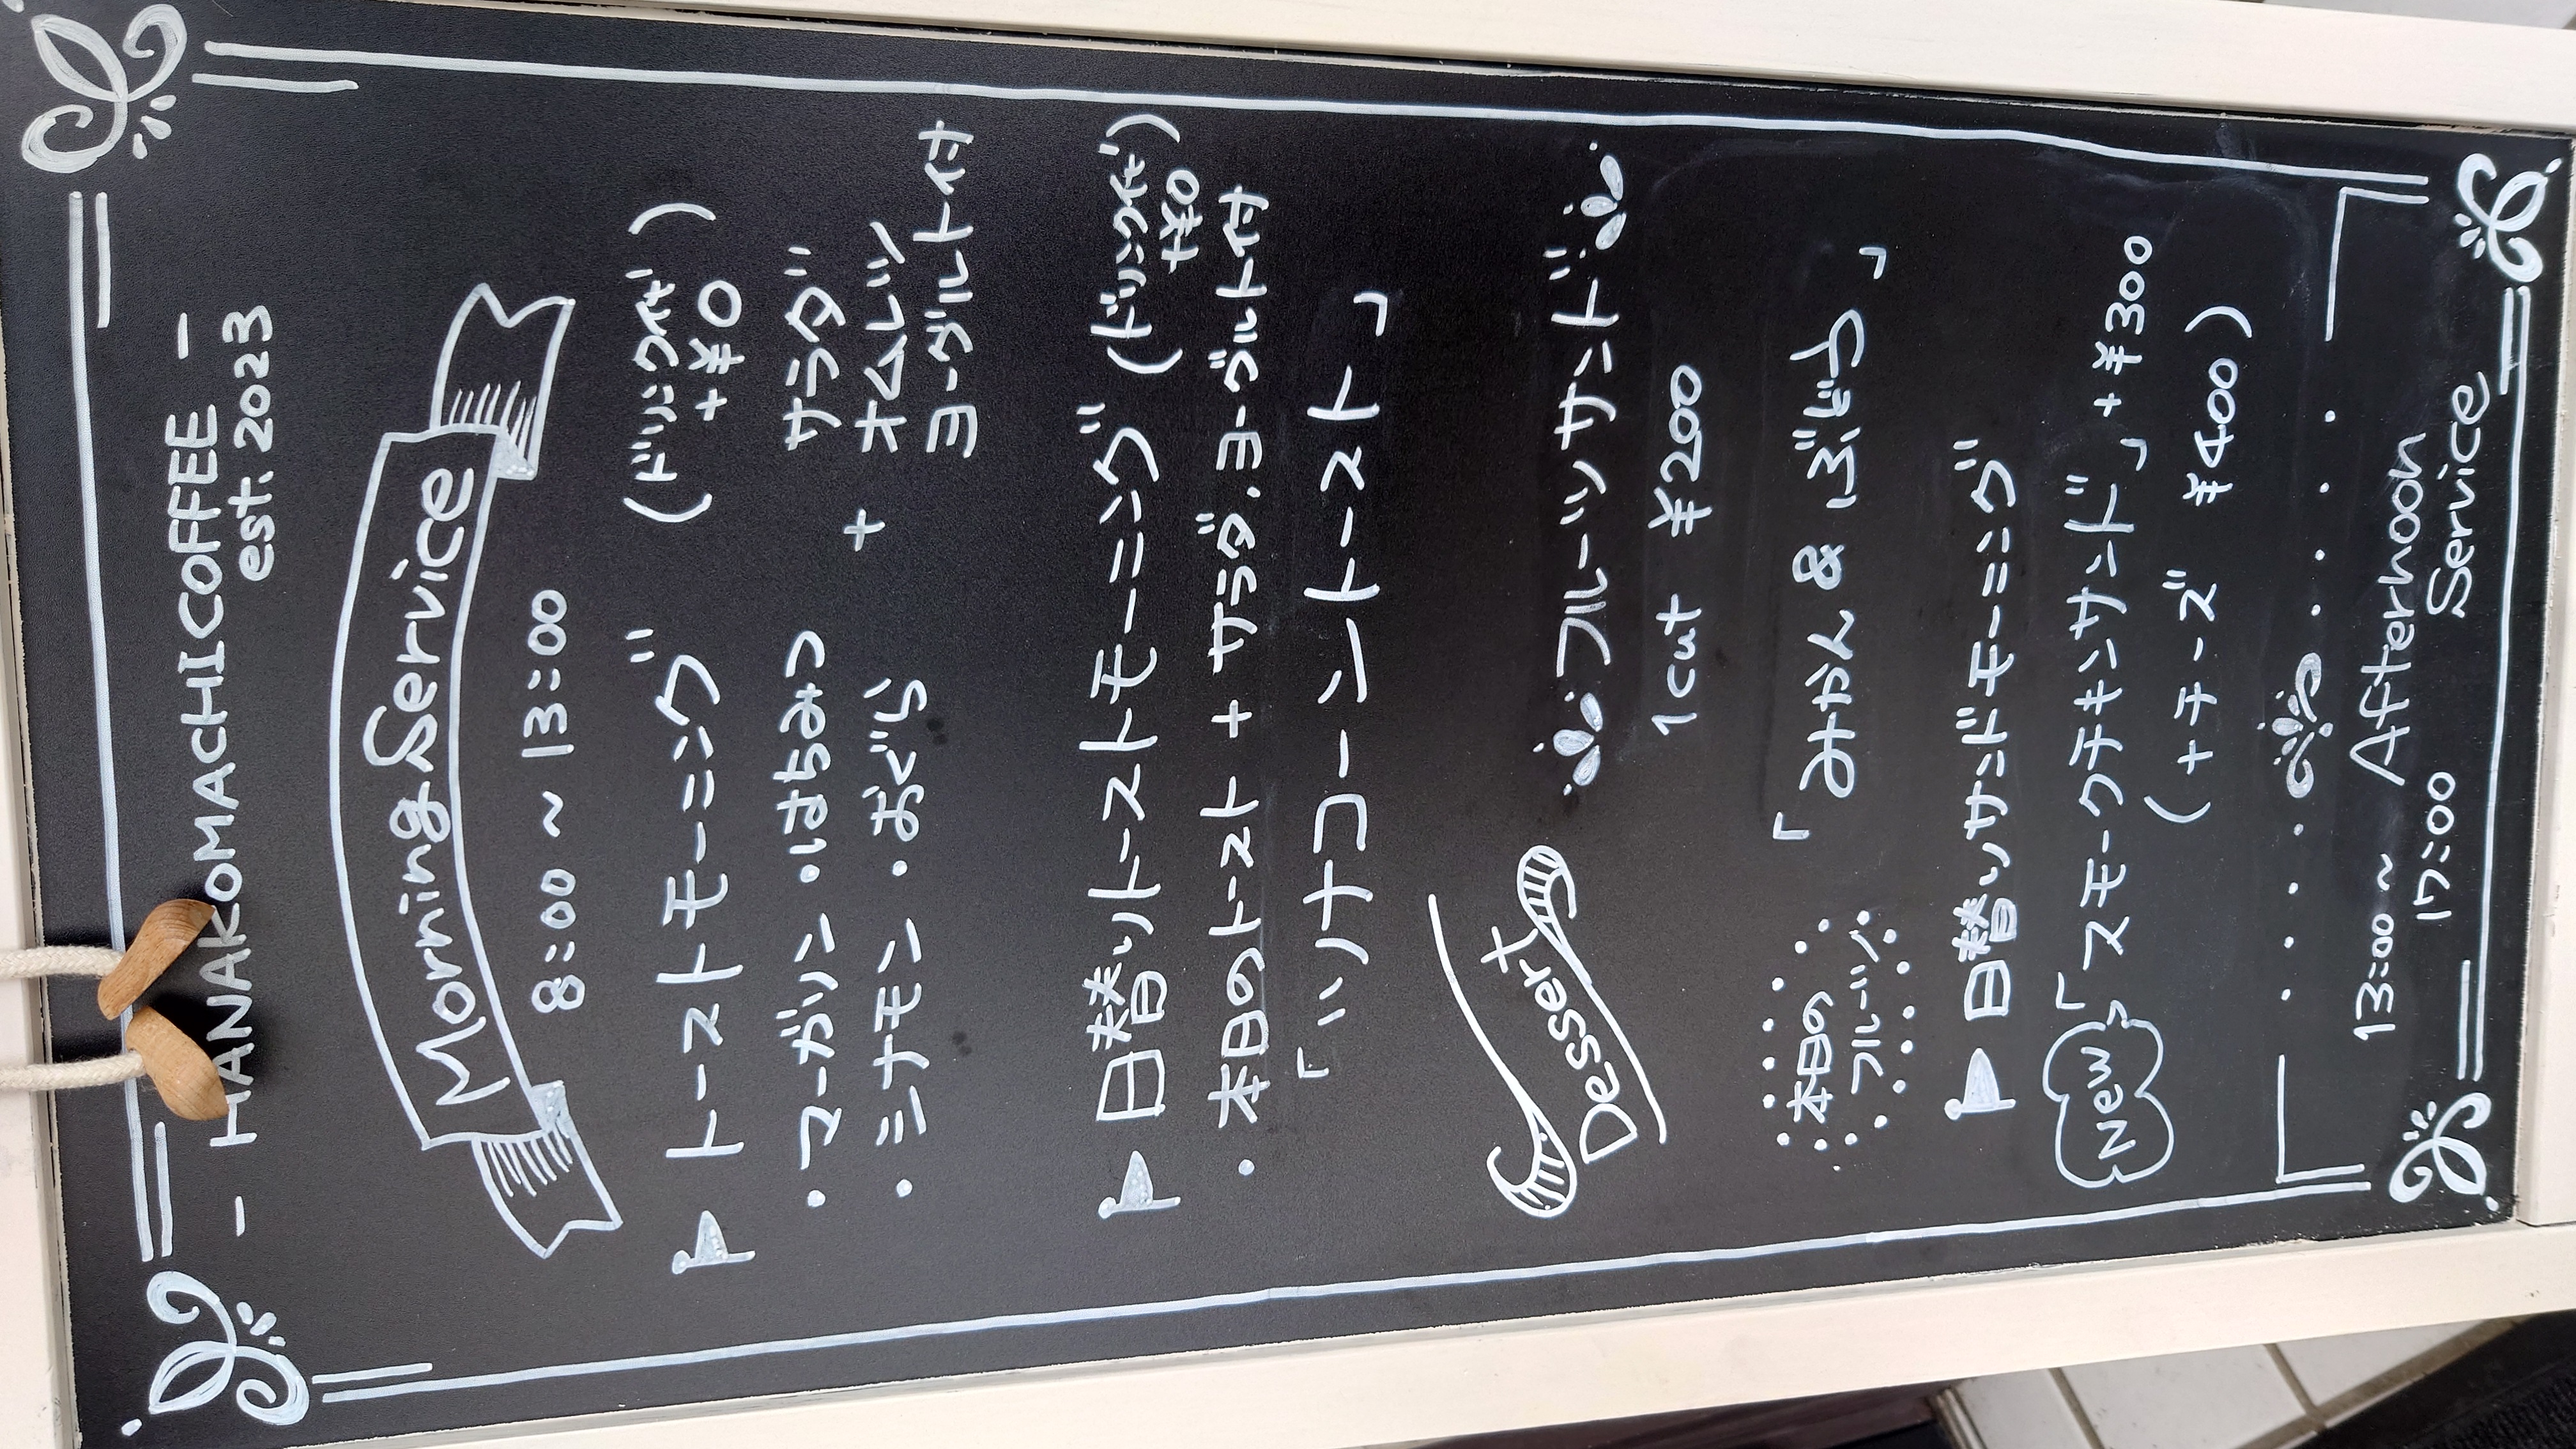 - HANAKOMACHI COFFEE -
est. 2023
Morning Service
8:00 ~ 13:00
トーストモーニング (ドリンク付) +¥0
・マーガリン ・はちみつ
・シナモン ・おぐら
+
サラダ
オムレツ
ヨーグルト付
日替りトーストモーニング (ドリンク付) +¥0
・本日のトースト + サラダ.ヨーグルト付
「ハナコーントースト」
Dessert
フルーツサンド
1cut ¥200
本日の
フルーツ
「みかん & ぶどう」
日替りサンドモーニング
New 「スモークチキンサンド」+¥300
(+チーズ ¥400)
13:00 ~
17:00
Afternoon
Service